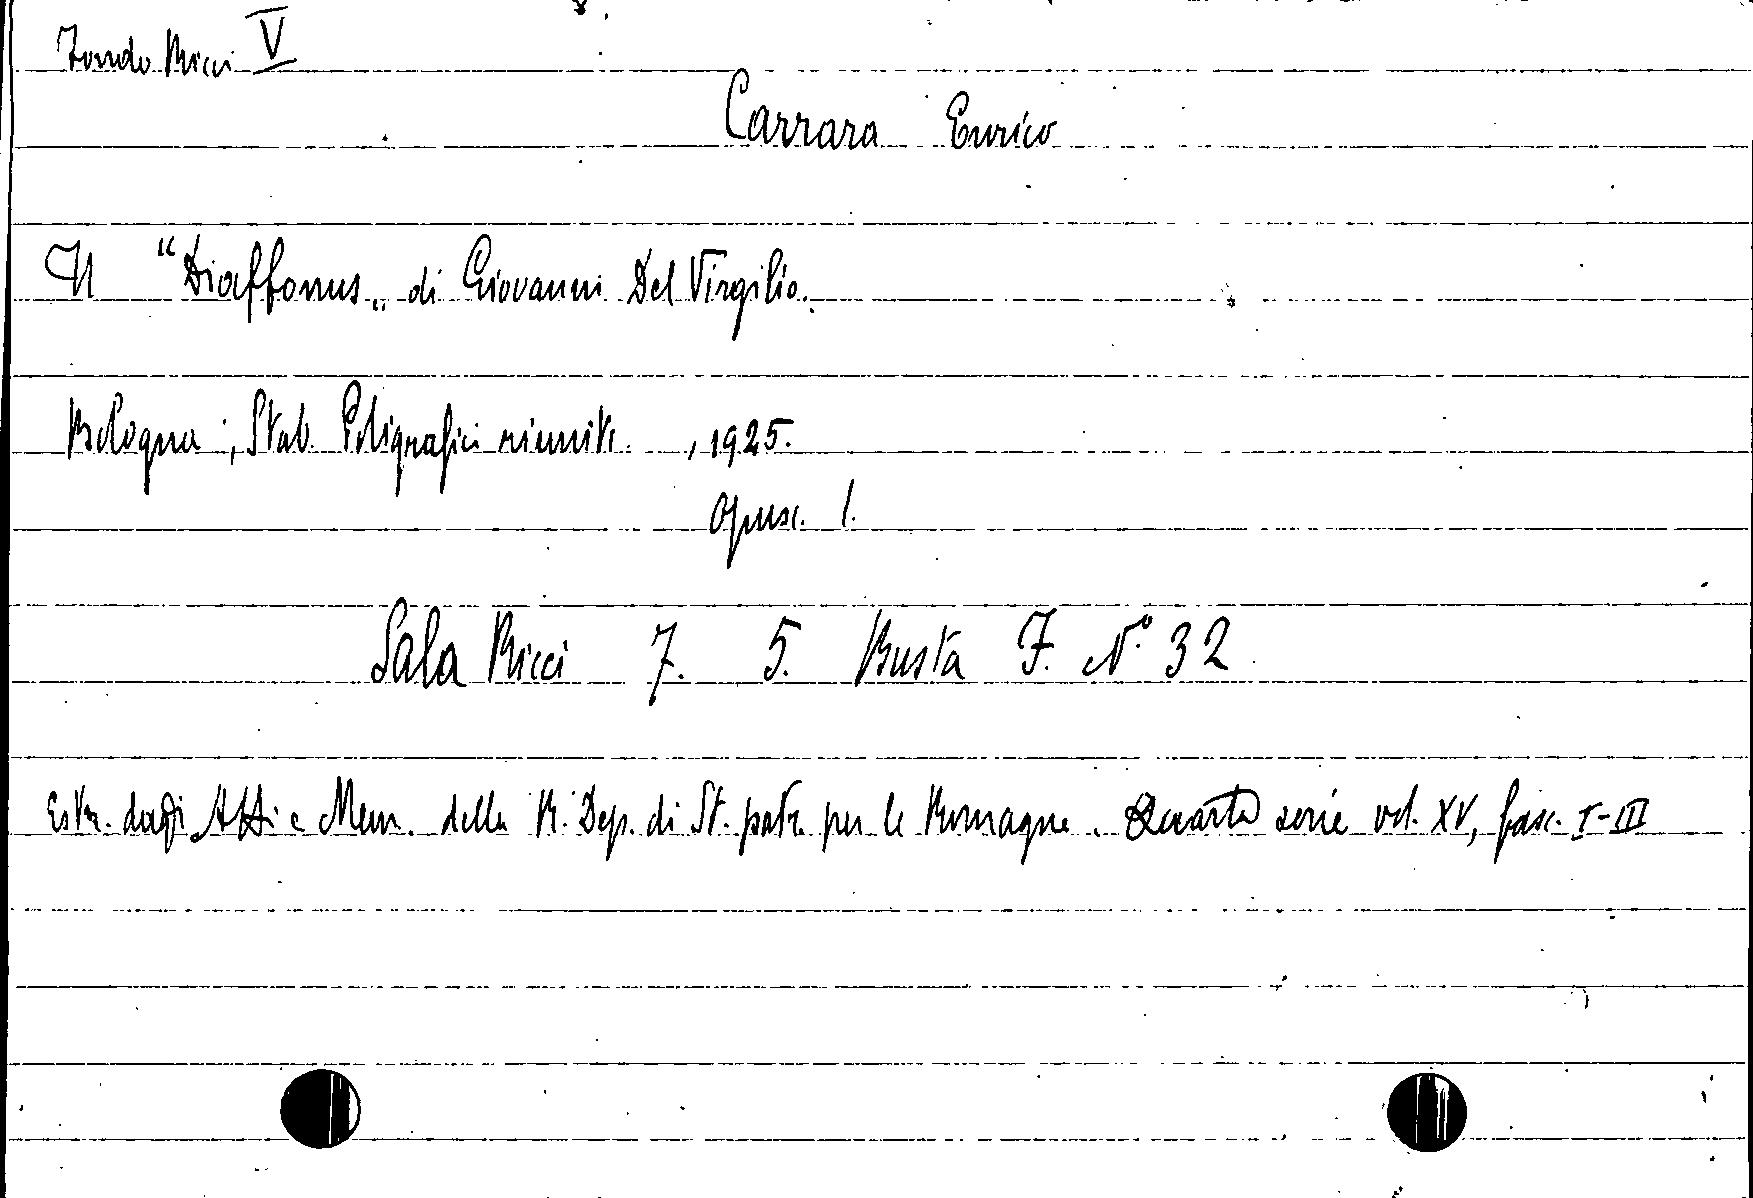 Fondo Ricci V
Carrara Enrico
Il "Diaffonus„ di Giovanni Del Virgilio.
Bologna, Stab. Poligrafici riuniti. , 1925.
Opusc. 1.
Sala Ricci 7. 5. Busta F. N.° 32
Estr. dagli Atti e Mem. della R. Dep. di St. patr. per le Romagne. Quarta serie vol. XV, fasc. I-III